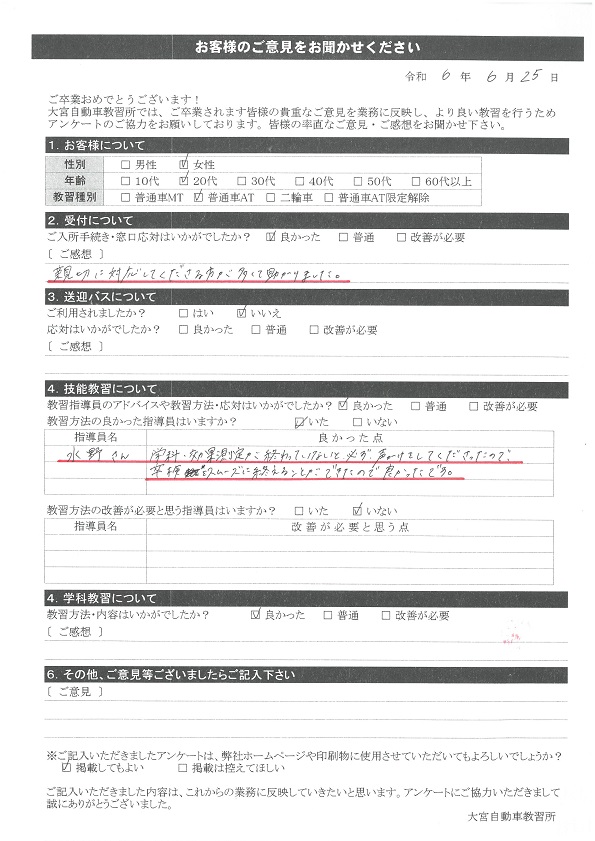 お客様のご意見をお聞かせください
令和 6 年 6 月 25 日
ご卒業おめでとうございます！
大宮自動車教習所では、ご卒業されます皆様の貴重なご意見を業務に反映し、より良い教習を行うため
アンケートのご協力をお願いしております。皆様の率直なご意見・ご感想をお聞かせ下さい。
1. お客様について
性別 □ 男性 ☑ 女性
年齢 □ 10代 ☑ 20代 □ 30代 □ 40代 □ 50代 □ 60代以上
教習種別 □ 普通車MT ☑ 普通車AT □ 二輪車 □ 普通車AT限定解除
2. 受付について
ご入所手続き・窓口応対はいかがでしたか？ ☑ 良かった □ 普通 □ 改善が必要
〔 ご感想 〕
親切に対応してくださる方が多くて助かりました。
3. 送迎バスについて
ご利用されましたか？ □ はい ☑ いいえ
応対はいかがでしたか？ □ 良かった □ 普通 □ 改善が必要
〔 ご感想 〕
4. 技能教習について
教習指導員のアドバイスや教習方法・応対はいかがでしたか？ ☑ 良かった □ 普通 □ 改善が必要
教習方法の良かった指導員はいますか？ ☑ いた □ いない
指導員名 良かった点
水野さん 学科・効果測定が終わっていないと必ず声かけをしてくださったので、
卒検 スムーズに終えることができたので良かったです。
教習方法の改善が必要と思う指導員はいますか？ □ いた ☑ いない
指導員名 改善が必要と思う点
4. 学科教習について
教習方法・内容はいかがでしたか？ ☑ 良かった □ 普通 □ 改善が必要
〔 ご感想 〕
6. その他、ご意見等ございましたらご記入下さい
〔 ご意見 〕
※ご記入いただきましたアンケートは、弊社ホームページや印刷物に使用させていただいてもよろしいでしょうか？
☑ 掲載してもよい □ 掲載は控えてほしい
ご記入いただきました内容は、これからの業務に反映していきたいと思います。アンケートにご協力いただきまして
誠にありがとうございました。
大宮自動車教習所